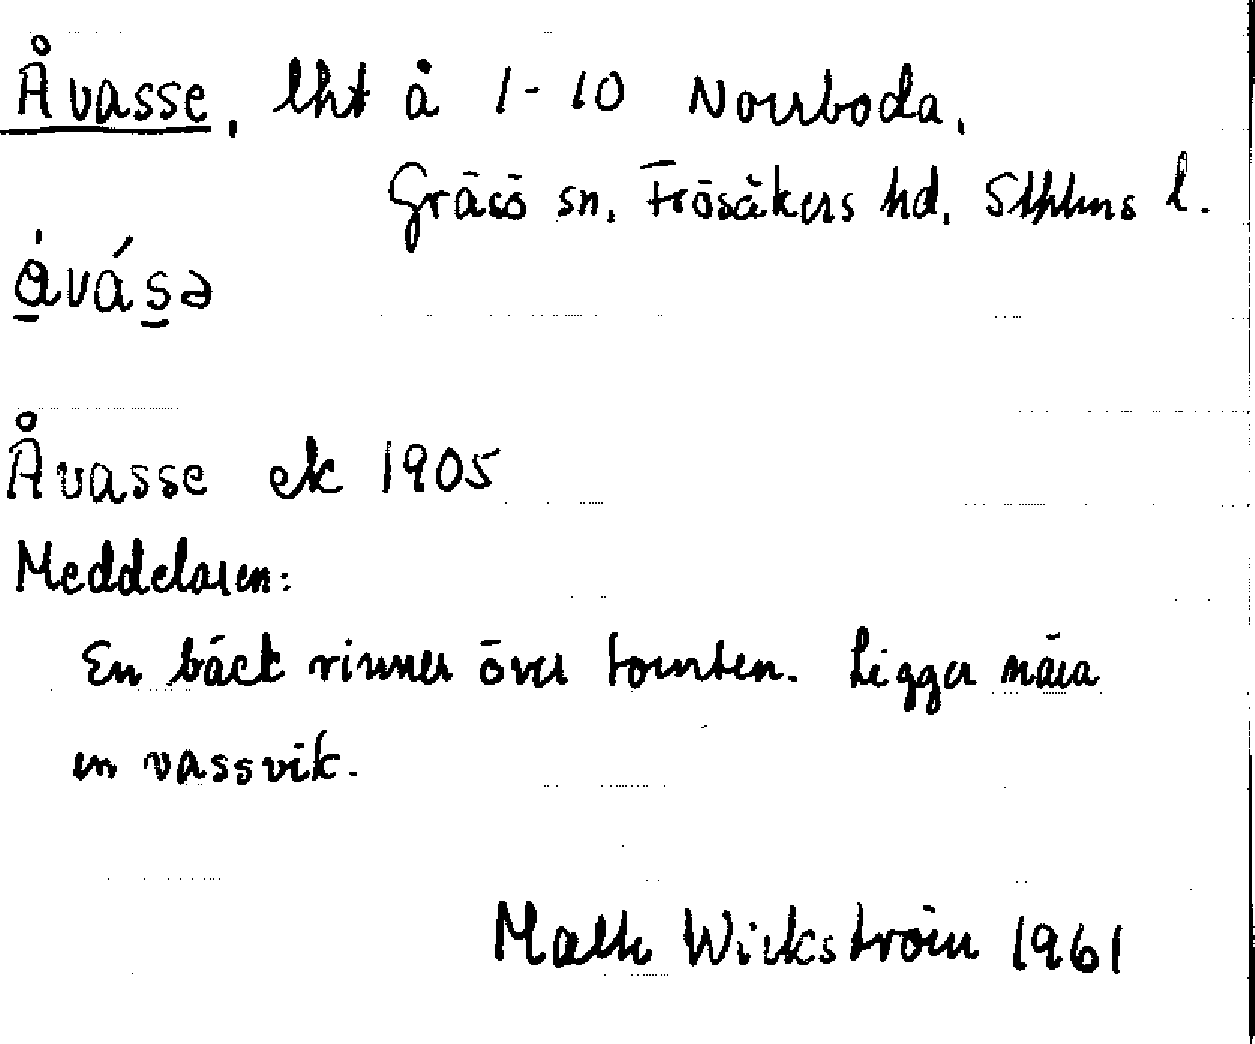 Åvasse, lht å 1-10 Norrboda,
Gräsö sn, Frösåkers hd, Sthlms l.
å̀vásə
Åvasse ek 1905
Meddelaren:
En bäck rinner över tomten. Ligger nära
en vassvik.
Wickström 1961